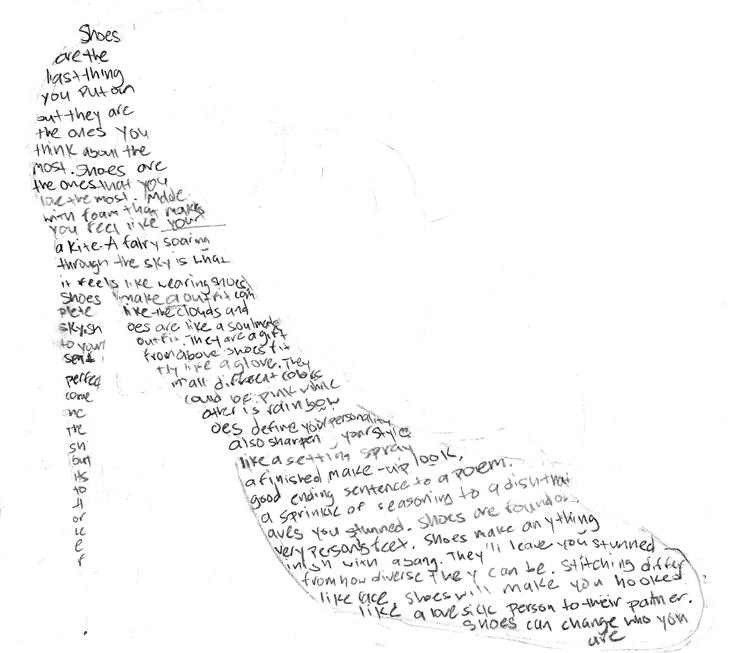 Shoes
are the
last thing
you put on
but they are
the ones you
think about the
most. Shoes are
the ones that you
love the most. Made
with foam that makes
you feel like your
a kite. A fairy soaring
through the sky is what
it feels like wearing shoes,
Shoes make a outfit com
plete like the clouds and
sky.sh oes are like a soulmate
to your outfit. They are a gift
sent from above shoes fit
perfect tly like a glove. They
come in all different colors
one could be pink while
the other is rainbow
sh oes define your personality
but also sharpen your style
its like a setting spray
to a finished make-up look,
a good ending sentence to a poem.
or a sprinkle of seasoning to a dish that
le aves you stunned. Shoes are found on
e very person's feet. Shoes make anything
f inish with a bang. They'll leave you stunned
from how diverse they can be. Stitching differ
like face shoes will make you hooked
like a love sick person to their partner.
Shoes can change who you
are